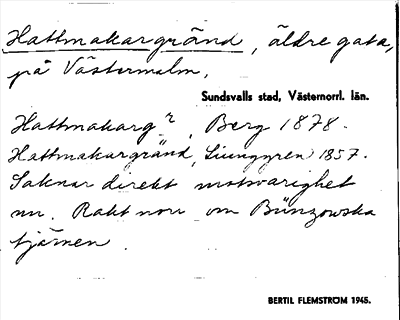 Hattmakargränd, äldre gata,
på Västermalm.
Sundsvalls stad, Västernorrl. län.
Hattmakargr, Berg 1878.
Hattmakargränd, Ljunggren 1857.
Saknar direkt motsvarighet
nu. Rakt norr om Bünzowska
tjärnen.
BERTIL FLEMSTRÖM 1945.